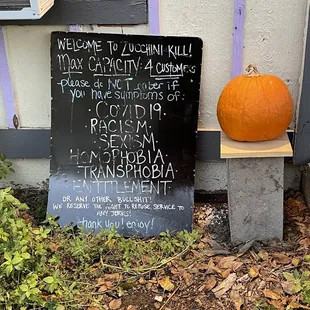 WELCOME TO ZUCCHINI KILL!
MAX CAPACITY: 4 CUSTOMERS
please do NOT enter if
you have symptoms of:
• COVID19
• RACISM
• SEXISM
• HOMOPHOBIA
• TRANSPHOBIA
• ENTITLEMENT
OR ANY OTHER BULLSHIT!
WE RESERVE THE RIGHT TO REFUSE SERVICE TO
ANY JERKS!
thank you! enjoy!